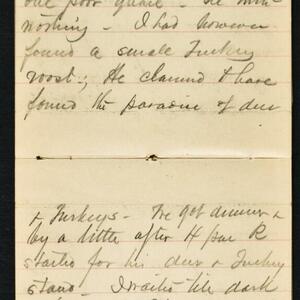 one poor quail - He
nothing - I had however
found a small Turkey
roost; He claimed to have
found the paradise of deer
& Turkeys - We got dinner &
by a little after 4 pm R
started for his deer & Turkey
stand - I waited till dark